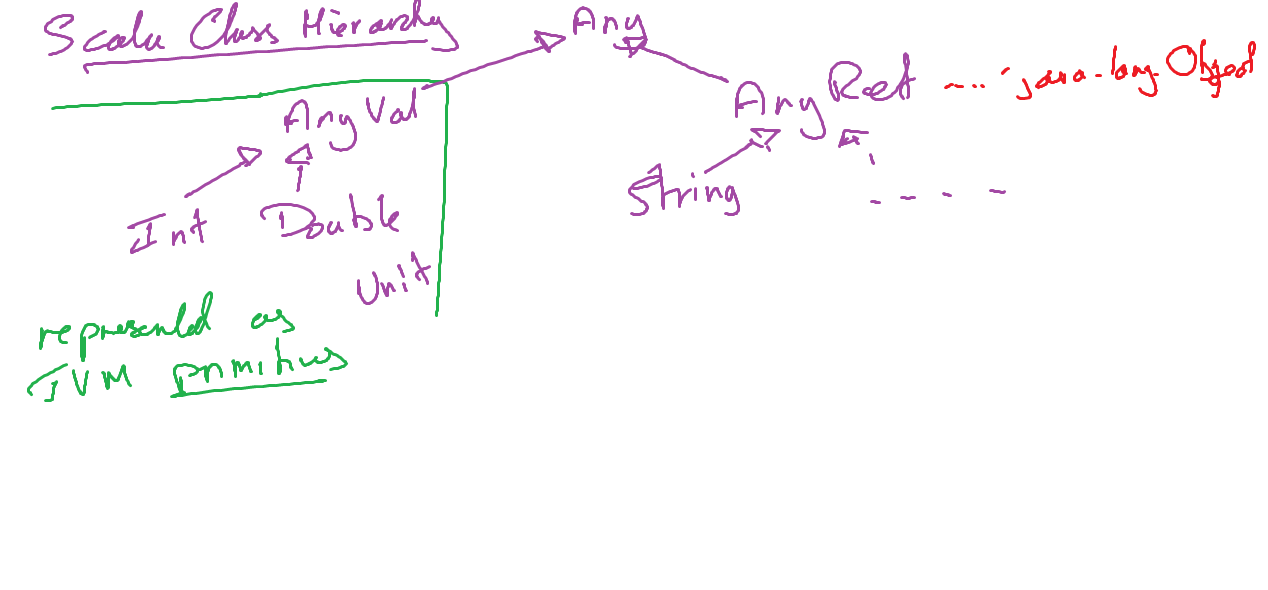 Scala Class Hierarchy
Any
AnyVal
AnyRef ---- java.lang.Object
Int Double
String - - - -
Unit
represented as
JVM primitives